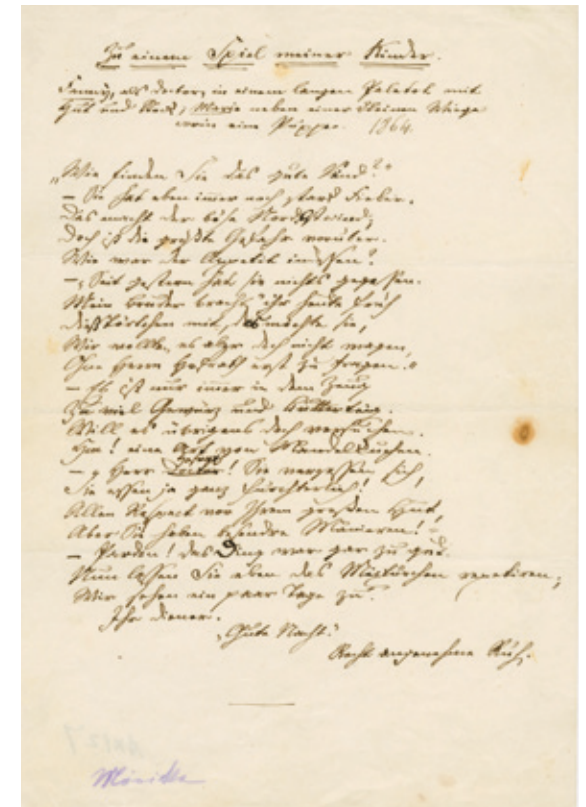 Zu einem Spiel meiner Kinder.
Fanny, als Doctor, in einem langen Paletot mit
Hut und Stock; Marie neben einer kleinen Wiege
worin eine Puppe. 1864.
„Wie finden Sie das gute Kind?"
– Sie hat eben immer noch stark Fieber.
Das macht der böse Nordostwind;
Doch ist die größte Gefahr vorüber.
Wie war der Appetit indessen?
– „Seit gestern hat sie nichts gegessen.
Mein Bruder bracht' ihr heute früh
Dieß Törtchen mit, das möchte sie,
Wir wollten es aber doch nicht wagen,
Ohne Herrn Hofrath erst zu fragen."
– Es ist nur immer in dem Zeug
Zu viel Gewürz und Butterteig.
Will es übrigens doch versuchen.
Hm! eine Art von Mandelkuchen.
Hofrat
– „Herr Doctor! Sie vergessen sich,
Sie essen ja ganz fürchterlich!
Allen Respect vor Ihrem großen Hut,
Aber Sie haben besondre Manieren!"
– Pardon! das Ding war gar zu gut.
Nun lassen Sie eben das Mixtürchen repetiren;
Wir sehen ein paar Tage zu.
Ihr Diener.
„Gute Nacht."
Recht angenehme Ruh.
Mörike